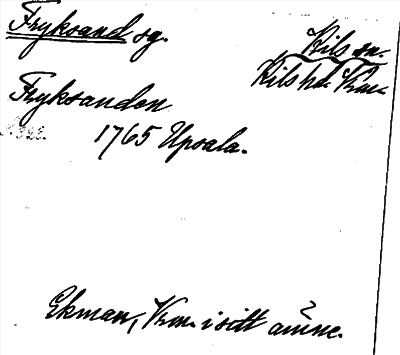 Fryksand sg.
Kils sn.
Kils hd. Vrm.
Fryksanden
1765 Upsala.
Ekman, Vrm. i sitt ämne.